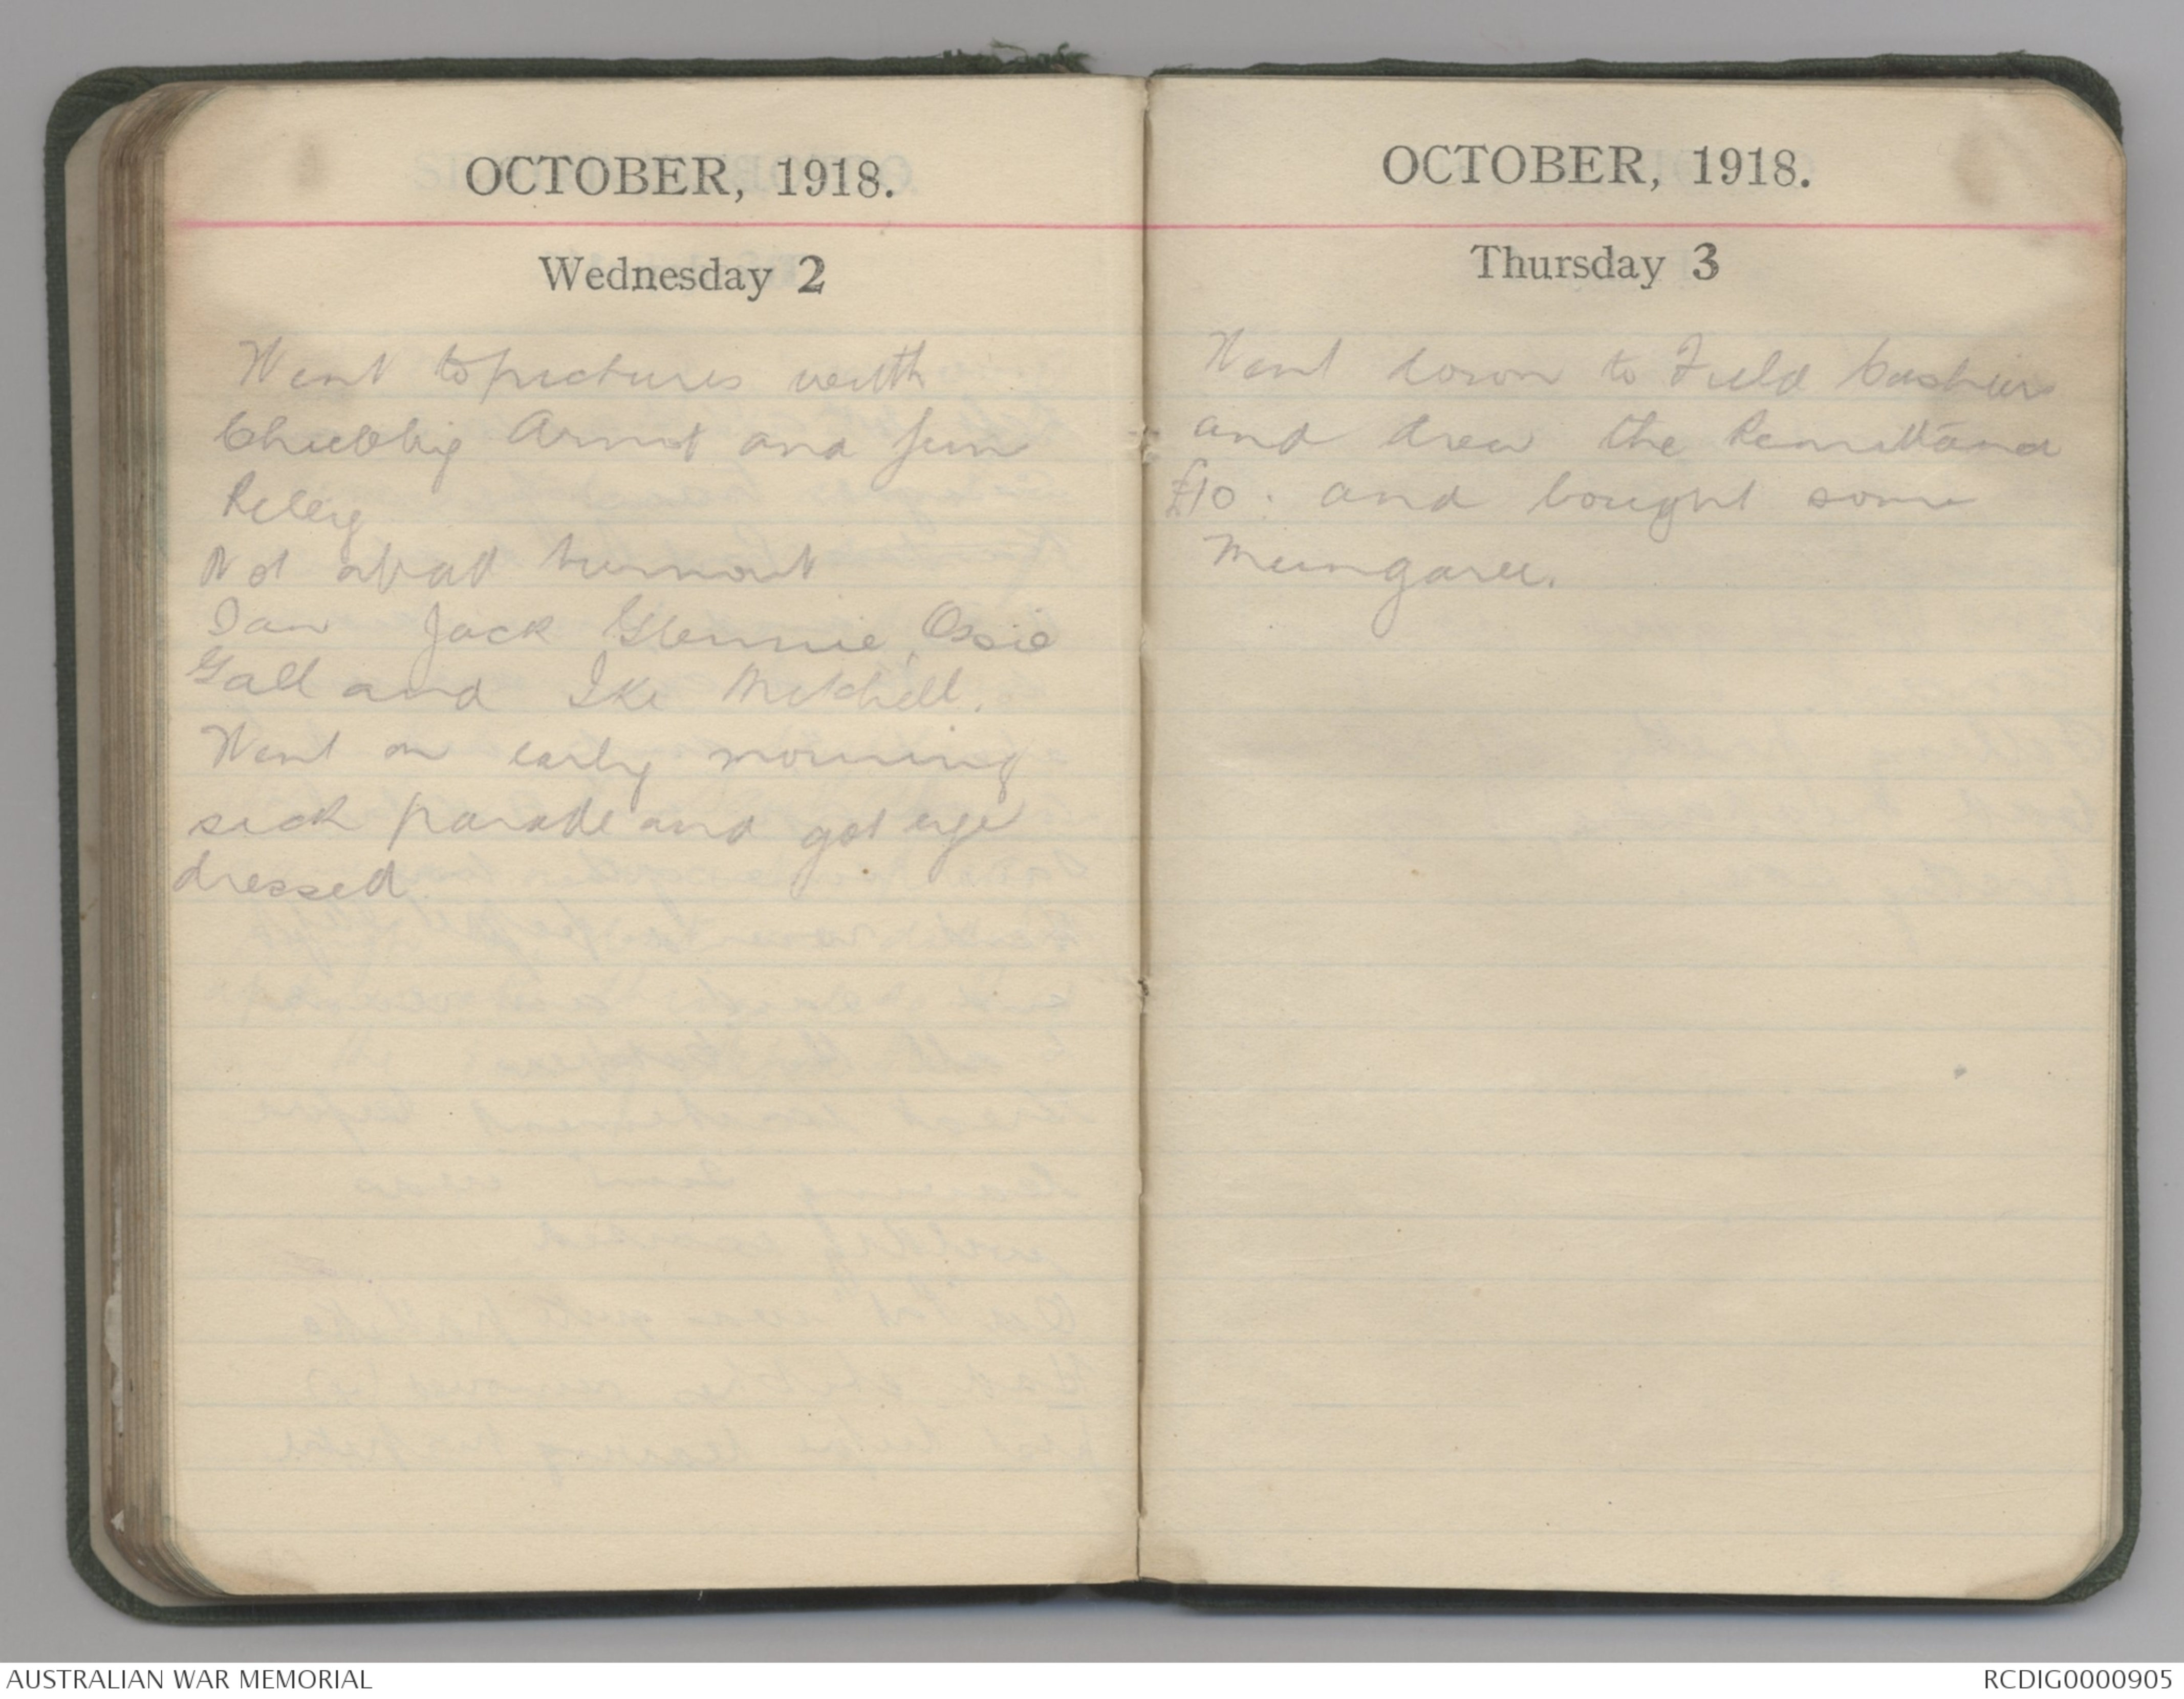 OCTOBER, 1918.
Wednesday 2
Went to pictures with
Chubby Arnot and Jim
Reley
Not a bad turnout
Saw Jack Glennie, Ossie
Gall and Ike Mitchell.
Went on early morning
sick parade and got eye
dressed.
OCTOBER, 1918.
Thursday 3
Went down to Field Cashiers
and drew the Remittance
£10. and bought some
Mungaree.
AUSTRALIAN WAR MEMORIAL
RCDIG0000905